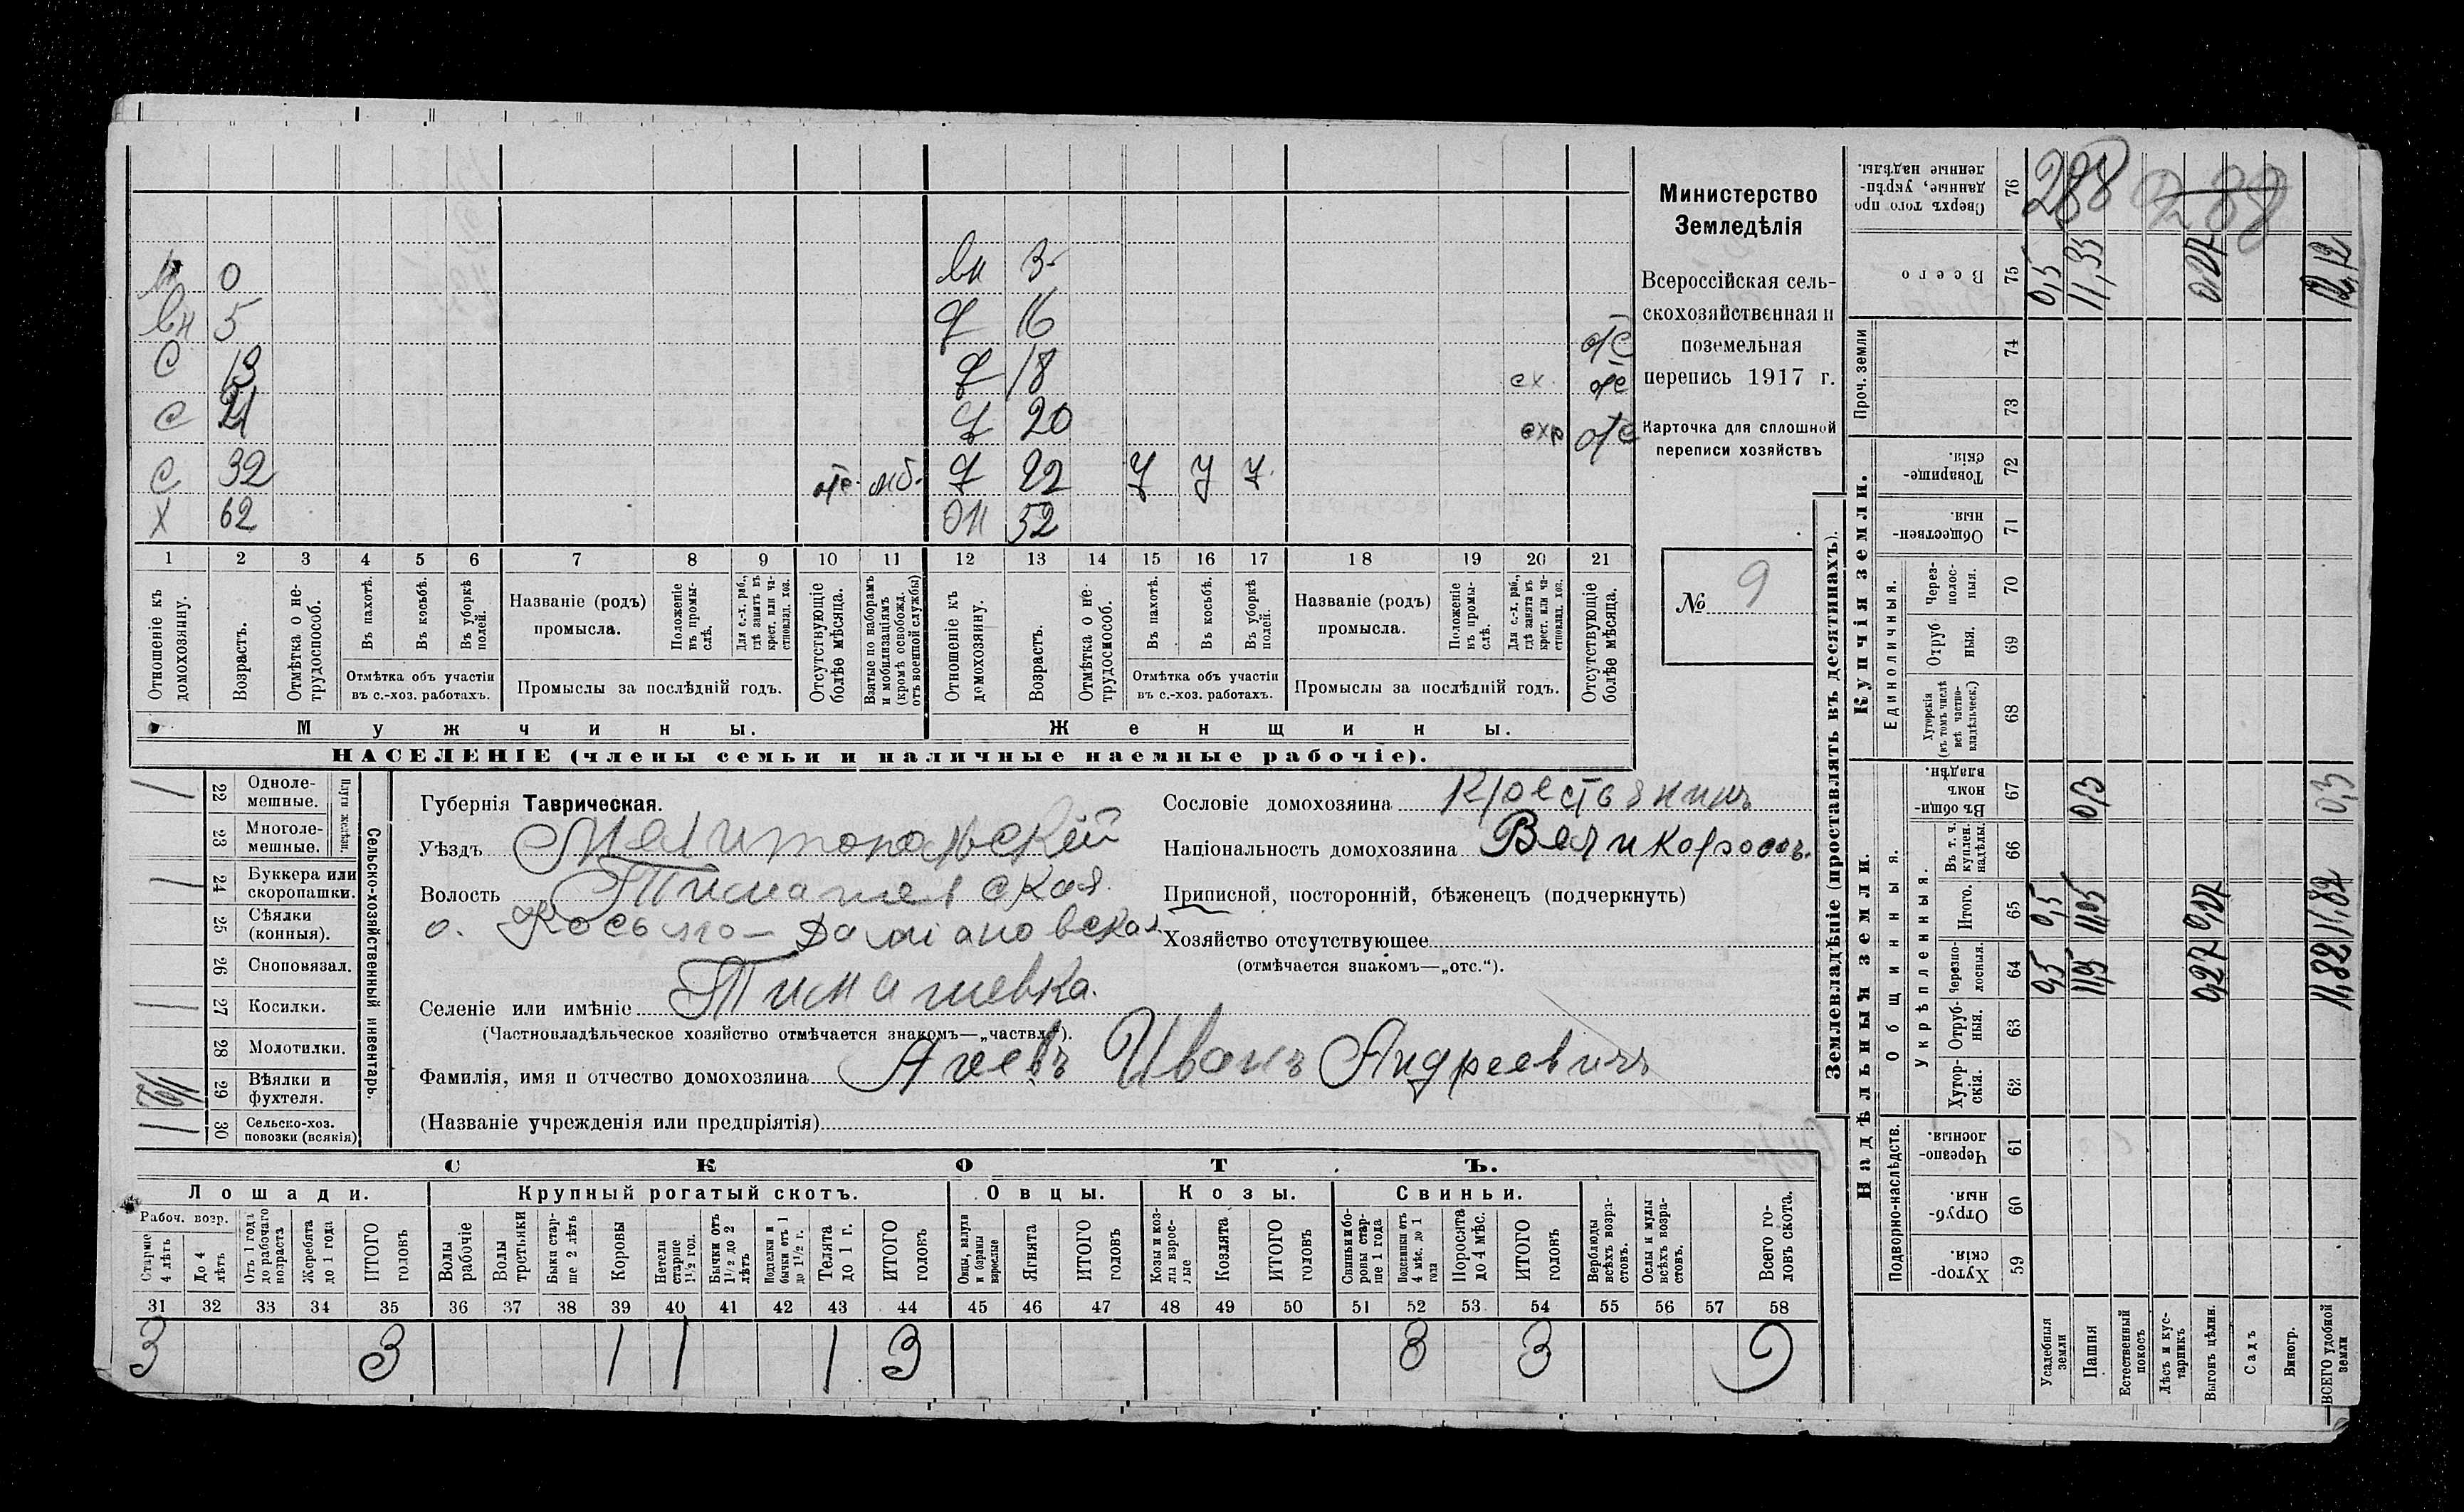 м 0 вн 3
вн 5 д 16
с 13 д 18 отс
с 21 д 20 сх отс
с 32 отс моб. д 22 у у у схр отс
х 62 жн 52
1 2 3 4 5 6 7 8 9 10 11 12 13 14 15 16 17 18 19 20 21
Отношеніе къ домохозяину.
Возрастъ.
Отмѣтка о нетрудоспособ.
Въ пахотѣ.
Въ косьбѣ.
Въ уборкѣ полей.
Отмѣтка объ участіи въ с.-хоз. работахъ.
Названіе (родъ) промысла.
Положеніе въ промыслѣ.
Для с.-х. раб., гдѣ занятъ въ крест. или частновлад. хоз.
Промыслы за послѣдній годъ.
Отсутствующіе болѣе мѣсяца.
Взятые по наборамъ и мобилизаціямъ (кромѣ освобожд. отъ военной службы)
Отношеніе къ домохозяину.
Возрастъ.
Отмѣтка о нетрудоспособ.
Въ пахотѣ.
Въ косьбѣ.
Въ уборкѣ полей.
Отмѣтка объ участіи въ с.-хоз. работахъ.
Названіе (родъ) промысла.
Положеніе въ промыслѣ.
Для с.-х. раб., гдѣ занята въ крест. или частновлад. хоз.
Промыслы за послѣдній годъ.
Отсутствующіе болѣе мѣсяца.
Мужчины. Женщины.
НАСЕЛЕНІЕ (члены семьи и наличные наемные рабочіе).
Министерство
Земледѣлія
Всероссійская сель-
скохозяйственная и
поземельная
перепись 1917 г.
Карточка для сплошной
переписи хозяйствъ
№ 9
Сельско-хозяйственный инвентарь.
Плуги желѣзн.
22 Одноле-
мешные.
23 Многоле-
мешные.
24 Буккера или
скоропашки.
25 Сѣялки
(конныя).
26 Сноповязал.
27 Косилки.
28 Молотилки.
29 Вѣялки и
фухтеля.
30 Сельско-хоз.
повозки (всякія)
Губернія Таврическая.
Уѣздъ Мелитопольскій
Волость Тимашевская
о. Косьмо-Даміановская
Селеніе или имѣніе Тимашевка.
(Частновладѣльческое хозяйство отмѣчается знакомъ—„частвл.“).
Фамилія, имя и отчество домохозяина Агеевъ Иванъ Андреевичъ
(Названіе учрежденія или предпріятія)
Сословіе домохозяина Крестьянинъ
Національность домохозяина Великороссъ.
Приписной, посторонній, бѣженец (подчеркнуть)
Хозяйство отсутствующее
(отмѣчается знакомъ—„отс.“).
СКОТЪ.
Лошади. Крупный рогатый скотъ. Овцы. Козы. Свиньи.
Рабоч. возр.
Старше 4 лѣтъ
До 4 лѣтъ
Отъ 1 года до рабочаго возраста
Жеребята до 1 года
ИТОГО головъ
Волы рабочіе
Волы третьяки
Быки старше 2 лѣтъ
Коровы
Нетели старше 1½ год.
Бычки отъ 1½ до 2 лѣтъ
Подтелки и бычки отъ 1 до 1½ г.
Телята до 1 г.
ИТОГО головъ
Овцы, валухи и бараны взрослые
Ягнята
ИТОГО головъ
Козы и козлы взрослые
Козлята
ИТОГО головъ
Свиньи и боровы старше 1 года
Подсвинки отъ 4 мѣс. до 1 года
Поросята до 4 мѣс.
ИТОГО головъ
Верблюды всѣхъ возрастовъ.
Ослы и мулы всѣхъ возрастовъ.
Всего головъ скота.
31 32 33 34 35 36 37 38 39 40 41 42 43 44 45 46 47 48 49 50 51 52 53 54 55 56 57 58
3 3 1 1 1 3 3 3 9
Землевладѣніе (проставлять въ десятинахъ).
Надѣльныя земли.
Купчія земли.
Проч. земли
Подворно-наслѣдств.
Общинныя.
Укрѣпленныя.
Единоличныя.
Сверхъ того проданные, укрѣпленные надѣлы. 76
Всего 75 0,5 11,35 0,27 12,12
74
73
Товарищескія. 72
Общественныя. 71
Черезполосныя. 70
Отрубныя. 69
Хуторскія (въ томъ числѣ всѣ частновладѣльческ.) 68
Въ общинномъ владѣн. 67 0,3 0,3
Въ т. ч. куплен. надѣлы. 66
Итого. 65 0,5 11,05 0,27 11,82
Черезполосныя. 64 0,5 11,05 0,27 11,82
Отрубныя. 63
Хуторскія. 62
Черезполосныя 61
Отрубныя. 60
Хуторскія. 59
Усадебныя земли
Пашня
Естественный покосъ
Лѣсъ и кустарникъ
Выгонъ цѣлин.
Садъ
Виногр.
ВСЕГО удобной земли
288
288